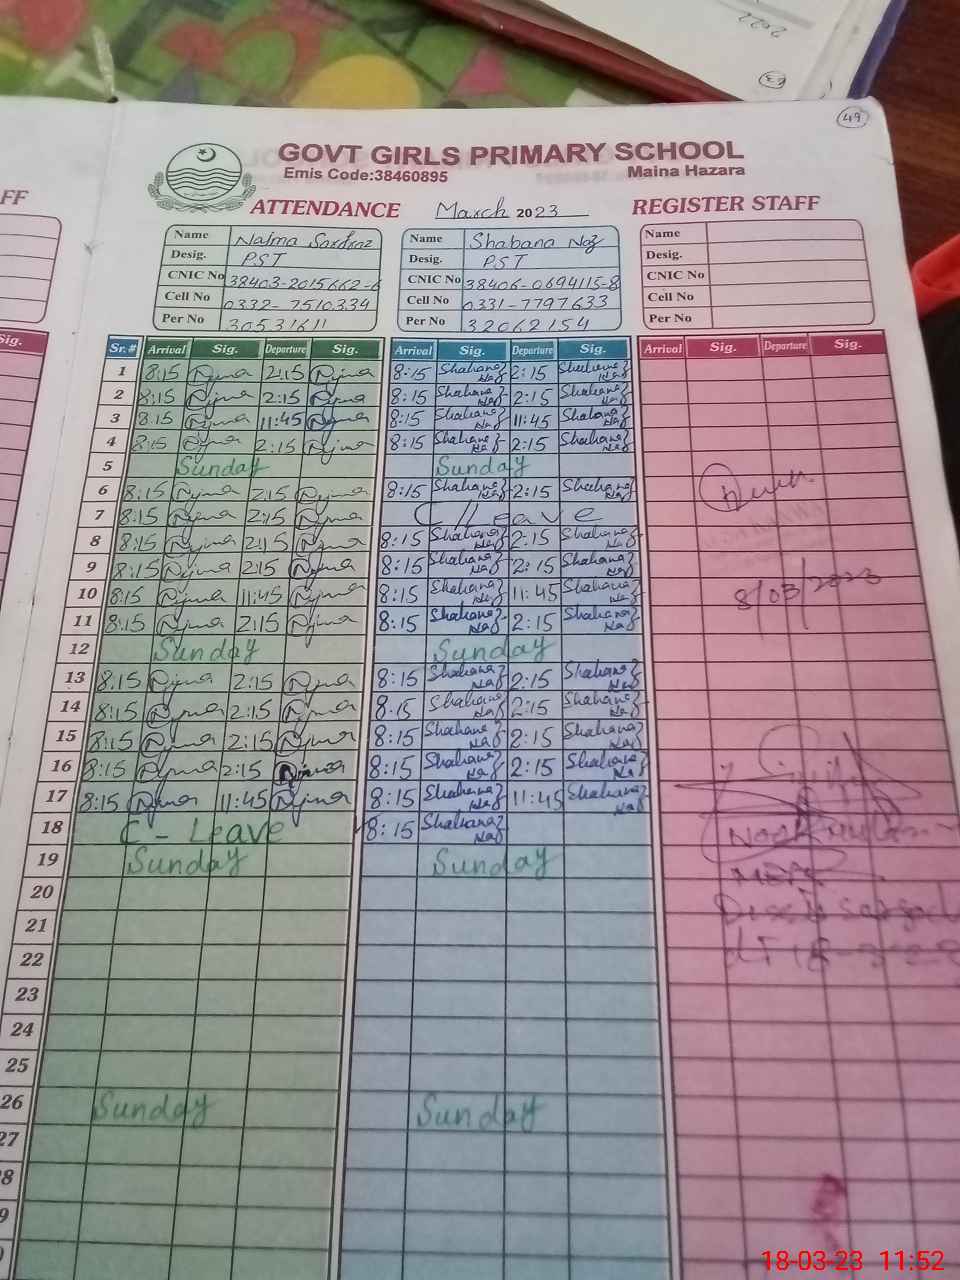 2022
49
GOVT GIRLS PRIMARY SCHOOL
Emis Code:38460895 Maina Hazara
FF
ATTENDANCE March 2023 REGISTER STAFF
Name Najma Sarfraz Name Shabana Naz Name
Desig. PST Desig. PST Desig.
CNIC No 38403-2015662-6 CNIC No 38406-0694115-8 CNIC No
Cell No 0332-7510334 Cell No 0331-7797633 Cell No
Per No 30531611 Per No 32062154 Per No
Sig. Sr.# Arrival Sig. Departure Sig. Arrival Sig. Departure Sig. Arrival Sig. Departure Sig.
1 8:15 Najma 2:15 Najma 8:15 Shabana Naz 2:15 Shabana Naz
2 8:15 Najma 2:15 Najma 8:15 Shabana Naz 2:15 Shabana Naz
3 8:15 Najma 11:45 Najma 8:15 Shabana Naz 11:45 Shabana Naz
4 8:15 Najma 2:15 Najma 8:15 Shabana Naz 2:15 Shabana Naz
5 Sunday Sunday
6 8:15 Najma 2:15 Najma 8:15 Shabana Naz 2:15 Shabana Naz
7 8:15 Najma 2:15 Najma C/Leave
8 8:15 Najma 2:15 Najma 8:15 Shabana Naz 2:15 Shabana Naz
9 8:15 Najma 2:15 Najma 8:15 Shabana Naz 2:15 Shabana Naz
10 8:15 Najma 11:45 Najma 8:15 Shabana Naz 11:45 Shabana Naz 8/03/2023
11 8:15 Najma 2:15 Najma 8:15 Shabana Naz 2:15 Shabana Naz
12 Sunday Sunday
13 8:15 Najma 2:15 Najma 8:15 Shabana Naz 2:15 Shabana Naz
14 8:15 Najma 2:15 Najma 8:15 Shabana Naz 2:15 Shabana Naz
15 8:15 Najma 2:15 Najma 8:15 Shabana Naz 2:15 Shabana Naz
16 8:15 Najma 2:15 Najma 8:15 Shabana Naz 2:15 Shabana Naz
17 8:15 Najma 11:45 Najma 8:15 Shabana Naz 11:45 Shabana Naz
18 C - Leave 8:15 Shabana Naz
19 Sunday Sunday
20
21
22
23
24
25
26 Sunday Sunday
27
8
9
18-03-23 11:52